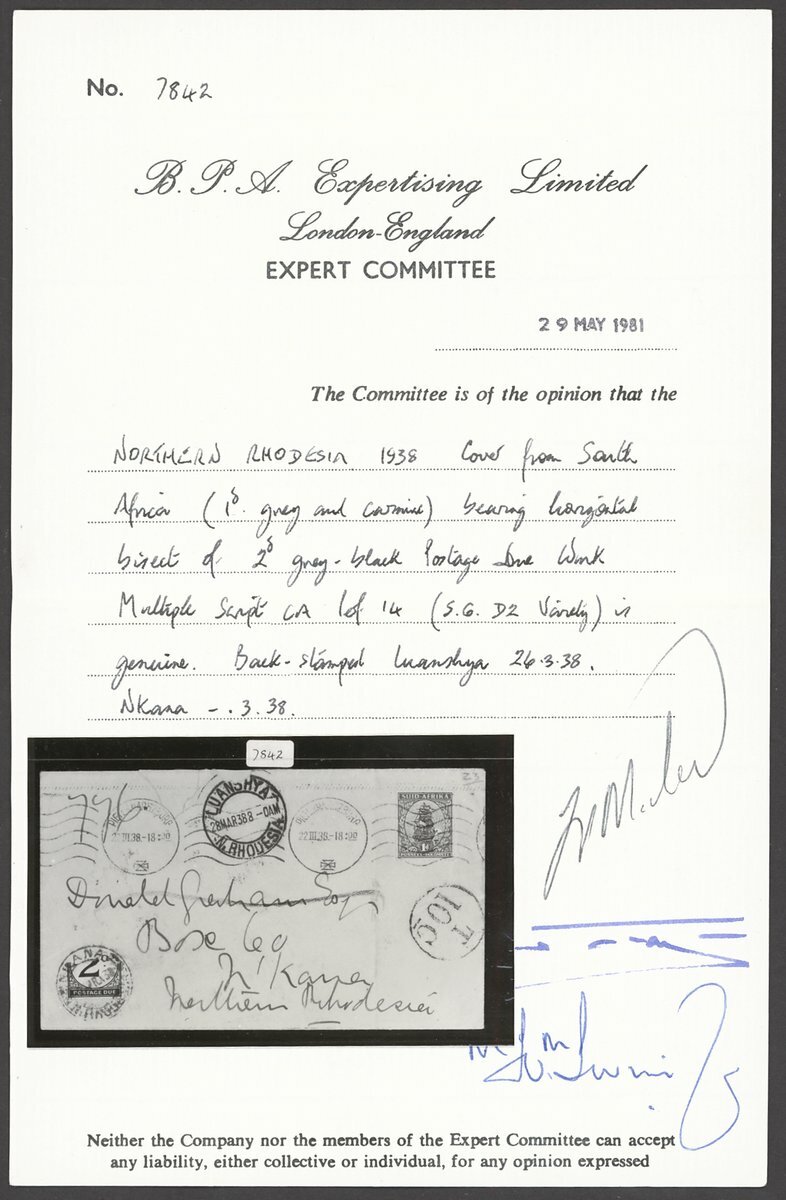 No. 7842
B.P.A. Expertising Limited
London-England
EXPERT COMMITTEE
29 MAY 1981
The Committee is of the opinion that the
NORTHERN RHODESIA 1938 Cover from South
Africa (1d. grey and carmine) bearing horizontal
bisect of 2d grey-black Postage Due Wmk
Multiple Script CA (of 14 (S.G. D2 Variety) is
genuine. Back-stamped Luanshya 26.3.38.
Nkana -.3.38.
7842
23
796
LUANSHYA
28MAR38 8-0AM
N.RHODESIA
22 III.38.-18:00
22 III.38.-18:00
SUID-AFRIKA
1d
Donald Graham Esq
Box 60
N'Kana
Northern Rhodesia
T
10C
NKANA
2d
POSTAGE DUE
Neither the Company nor the members of the Expert Committee can accept
any liability, either collective or individual, for any opinion expressed